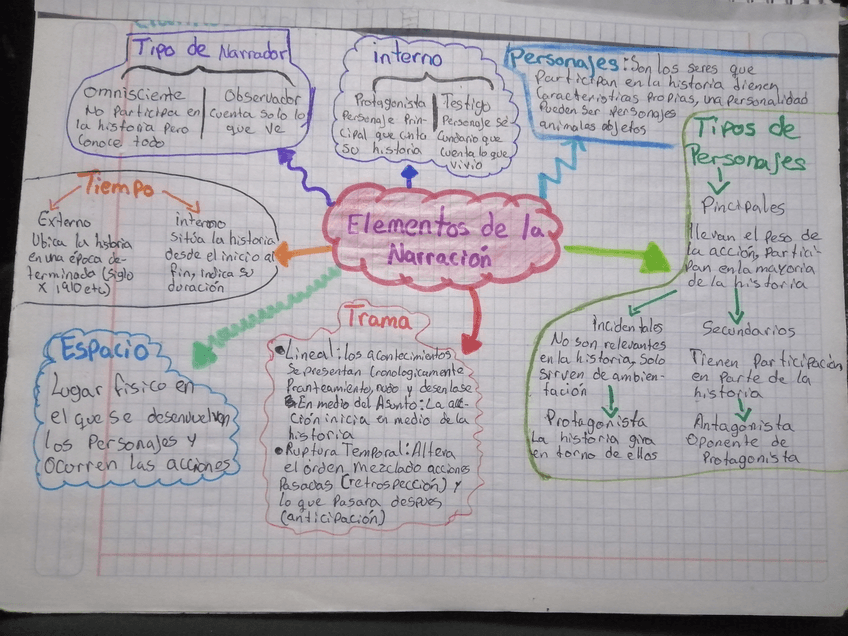 Tipo de Narrador
Omnisciente
No Participa en
la historia pero
Conoce todo
Observador
Cuenta solo lo
que ve
interno
Protagonista
Personaje Prin-
cipal que cunta
su historia
Testigo
Personaje se-
cundario que
cuenta lo que
vivio
Personajes: Son los seres que
Participan en la historia tienen
Características propias, una personalidad
Pueden ser personajes
animales objetos
Tipos de
Personajes
Pincipales
llevan el peso de
la acción, partici-
pan en la mayoria
de la historia
Incidentales
No son relevantes
en la historia, solo
sirven de ambien-
tación
Protagonista
La historia gira
en torno de ellos
Secundarios
Tienen Participación
en Parte de la
historia
Antagonista
Oponente de
Protagonista
Elementos de la
Narración
Tiempo
Externo
Ubica la hstoria
en una época de-
terminada (siglo
X 1910 etc)
interno
Sitúa la historia
desde el inicio al
fin, indica su
duración
Espacio
Lugar fisico en
el que se desenvuelven
los Personajes y
Ocurren las acciones
Trama
Lineal: los acontecimientos
Se presentan cronologicamente
Pranteamiento, nudo y desenlase
En medio del Asunto: La ac-
ción inicia en medio de la
historia
Ruptura Temporal: Altera
el orden, mezclado acciones
Pasadas (retrospección) y
lo que Pasara despues
(anticipación)